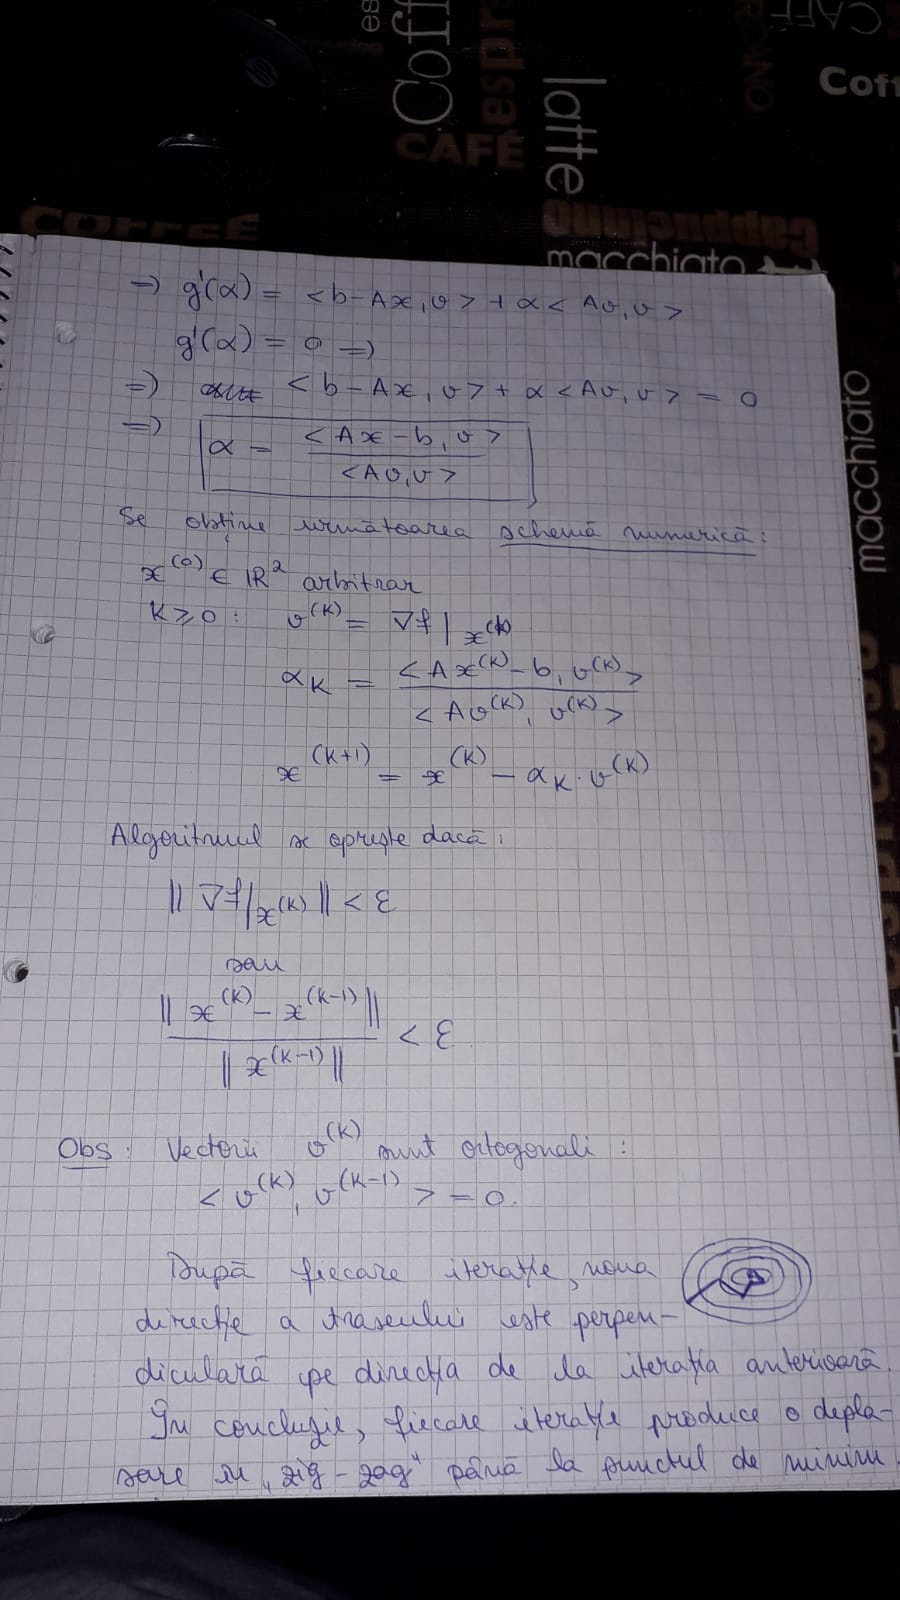 es
Coff
espr
latte
CAFÉ
CAFF
Coff
COFFEE
Cappuccino
macchiato
macchiato
=> g'(α) = <b-Ax, v> + α<Av, v>
g'(α) = 0 =>
=> <b-Ax, v> + α<Av, v> = 0
=> α = <Ax-b, v> / <Av, v>
Se obține următoarea schemă numerică:
x^(0) ∈ ℝ² arbitrar
K ≥ 0 : v^(K) = ∇f|x^(k)
α_K = <Ax^(K)-b, v^(K)> / <Av^(K), v^(K)>
x^(K+1) = x^(K) - α_K · v^(K)
Algoritmul se oprește dacă:
|| ∇f|x^(K) || < ε
sau
|| x^(K) - x^(K-1) || / || x^(K-1) || < ε
Obs: Vectorii v^(K) sunt ortogonali :
<v^(K), v^(K-1)> = 0.
După fiecare iterație, noua
direcție a traseului este perpen-
diculară pe direcția de la iterația anterioară.
În concluzie, fiecare iterație produce o depla-
sare în „zig-zag" până la punctul de minim.